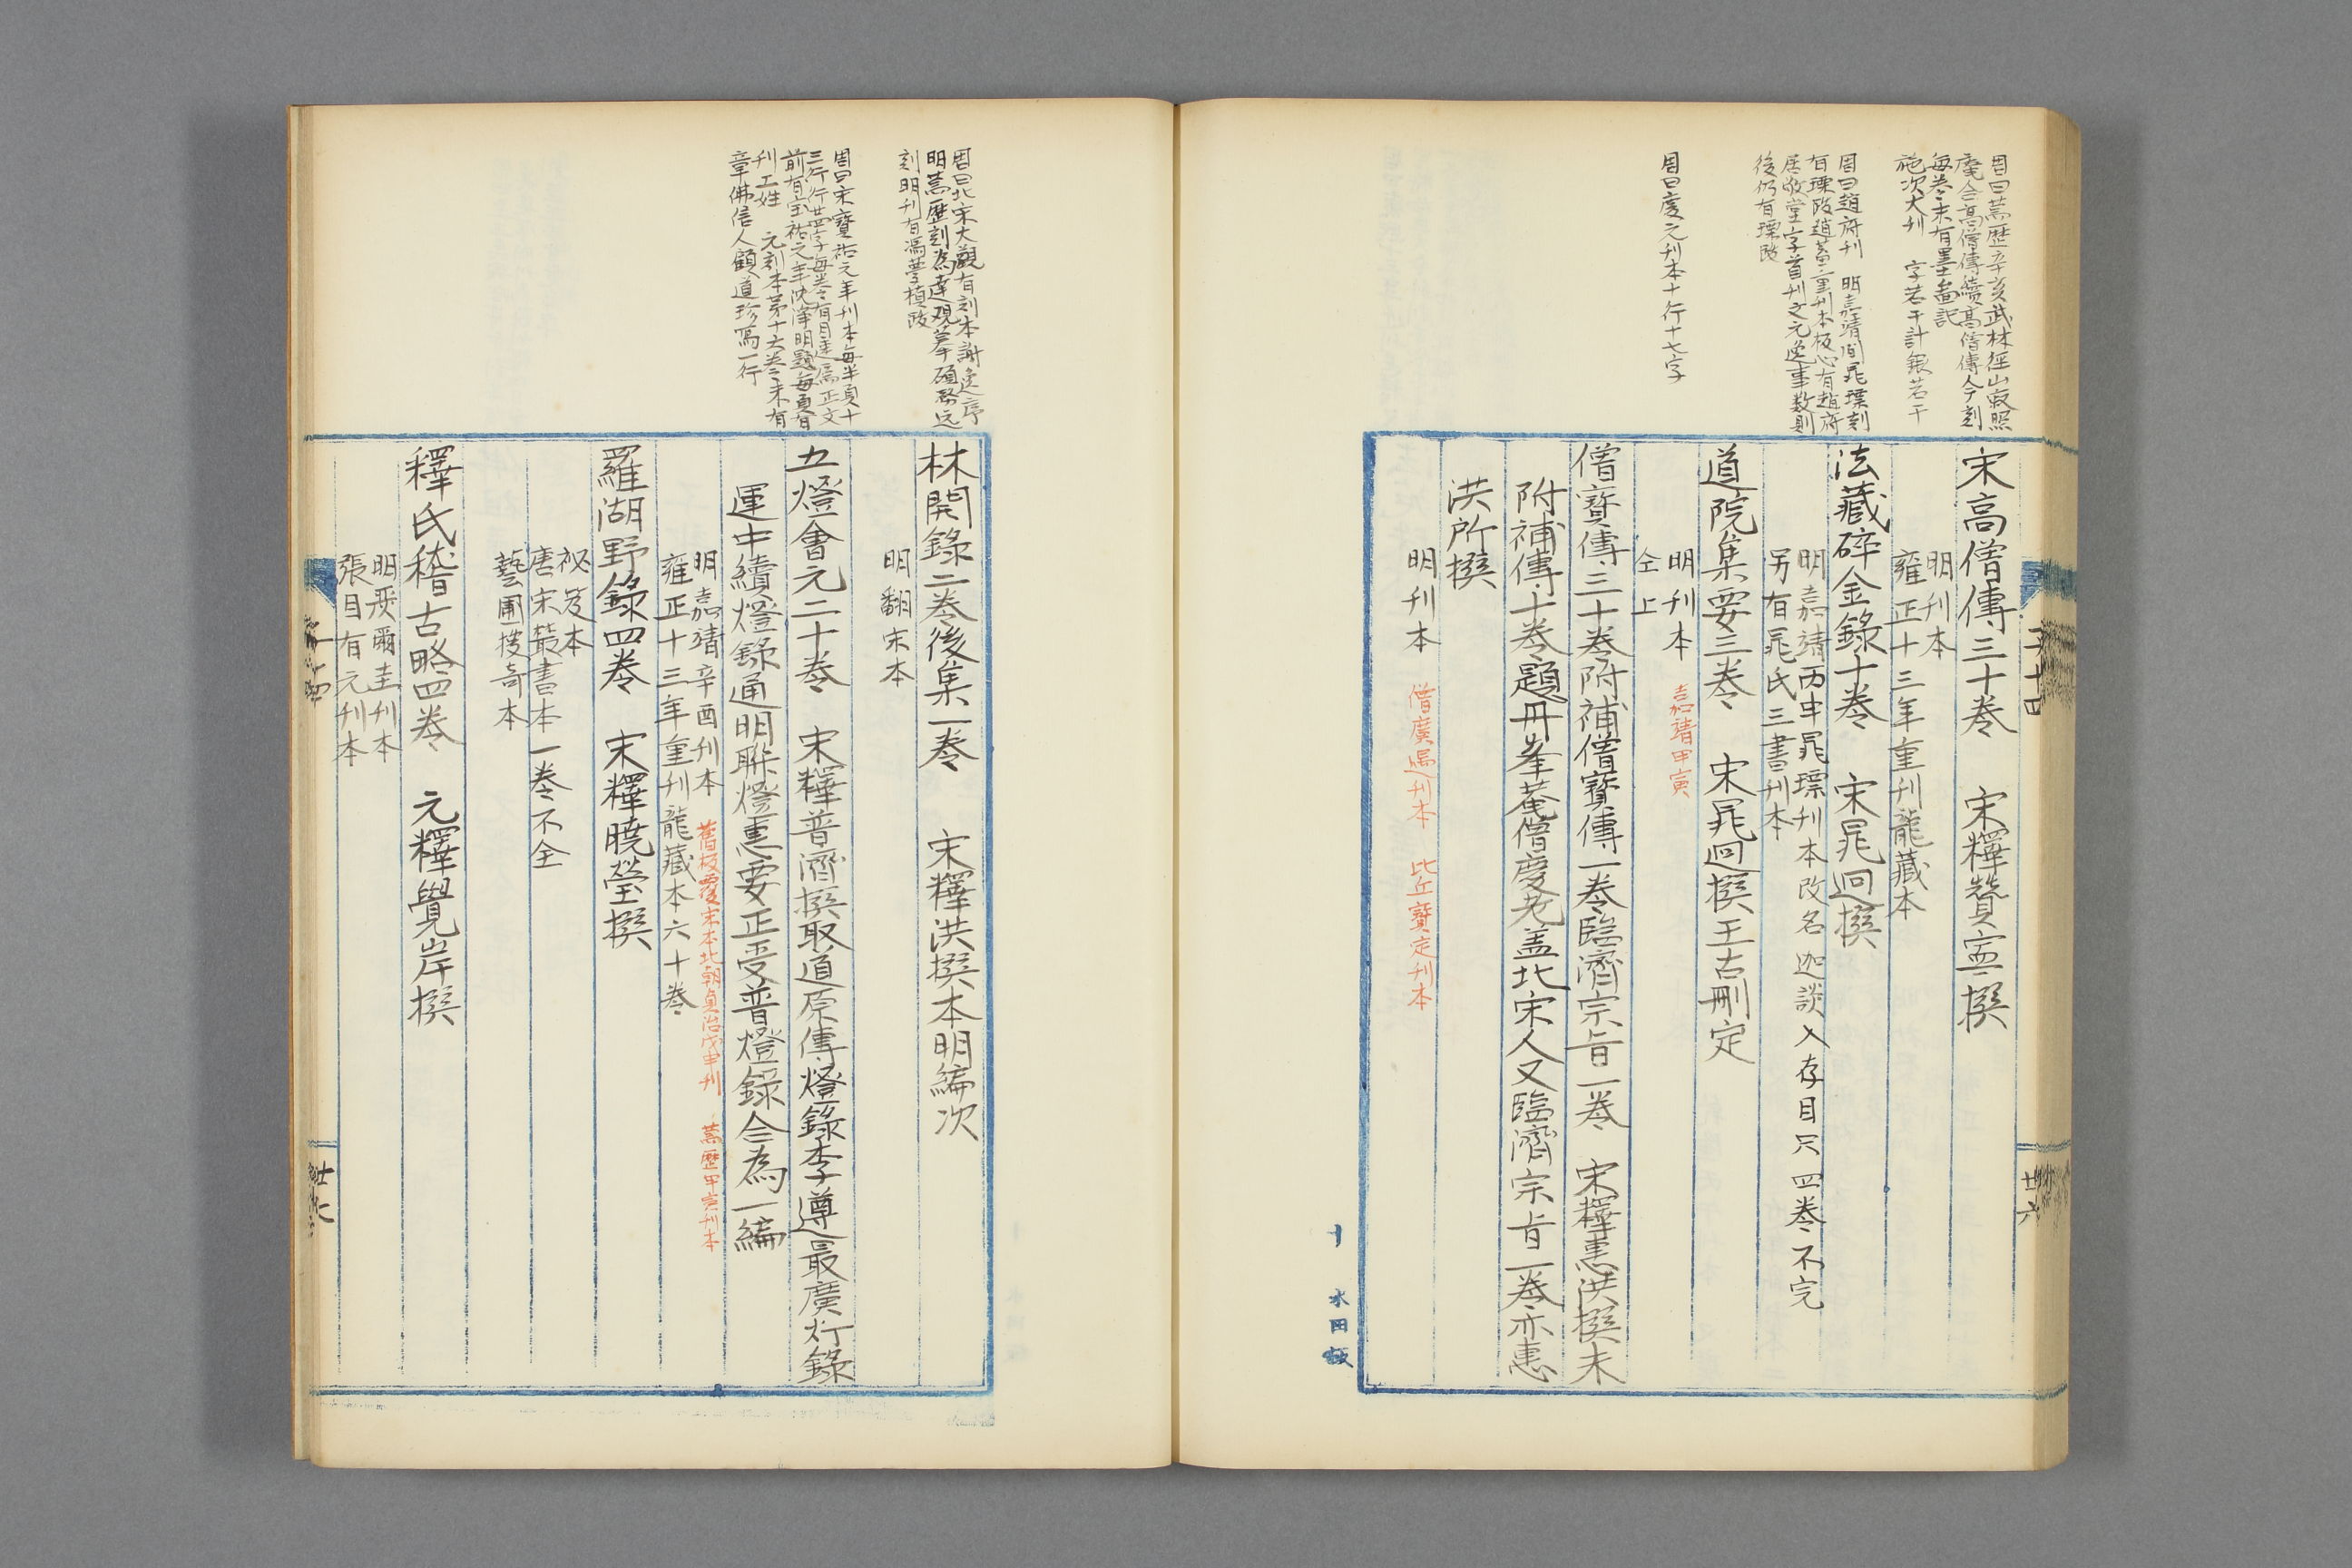 周曰萬歷辛亥武林徑山寂照
庵合高僧傳續高僧傳今刻
每卷末有墨啚記
施次大刊 字若干計銀若干
周曰趙府刊 明嘉靖間晁瑮刻
有瑮跋趙葢重刊本板心有趙府
居敬堂字首刊文元逸事数則
後仍有瑮跋
周曰慶元刊本十行十七字
宋高僧傳三十卷 宋釋贊寧撰
明刊本
雍正十三年重刊龍藏本
法藏碎金錄十卷 宋晁迥撰
明嘉靖丙申晁瑮刊本改名迦談入存目只四卷不完
另有晁氏三書刊本
道院集要三卷 宋晁迥撰王古刪定
明刊本 嘉靖甲寅
仝上
僧寶傳三十卷附補僧寶傳一卷臨濟宗旨一卷 宋釋惠洪撰末
附補傳十卷題丹峯菴僧慶老盖北宋人又臨濟宗旨一卷亦惠
洪所撰
明刊本 僧廣遇刊本 比丘寶定刊本
卷十四
廿六
水田
周曰北宋大觀有刻本謝逸序
明萬歷刻為達观摹碩
刻明刊有馮夢楨跋
周曰宋寶祐元年刊本每半頁十
三行行廿四字每卷有目連屬正文
前有宝祐元年沈淨明題每頁有
刊工姓 元刻本苐十六卷末有
章佛信人顧道珍寫一行
林間錄二卷後集一卷 宋釋洪撰本明編次
明翻宋本
五燈會元二十卷 宋釋普濟撰取道原傳燈錄李遵最廣灯錄
運中續燈錄通明聨燈惠要正受普燈錄合為一編
明嘉靖辛酉刊本 舊板覆宋本北朝貞治戊申刊 萬歷甲寅刊本
雍正十三年重刊龍藏本六十卷
羅湖野錄四卷 宋釋曉瑩撰
祕笈本
唐宋叢書本一卷不全
藝圃搜奇本
釋氏稽古略四卷 元釋覺岸撰
明裴爾圭刊本
張目有元刊本
廿七